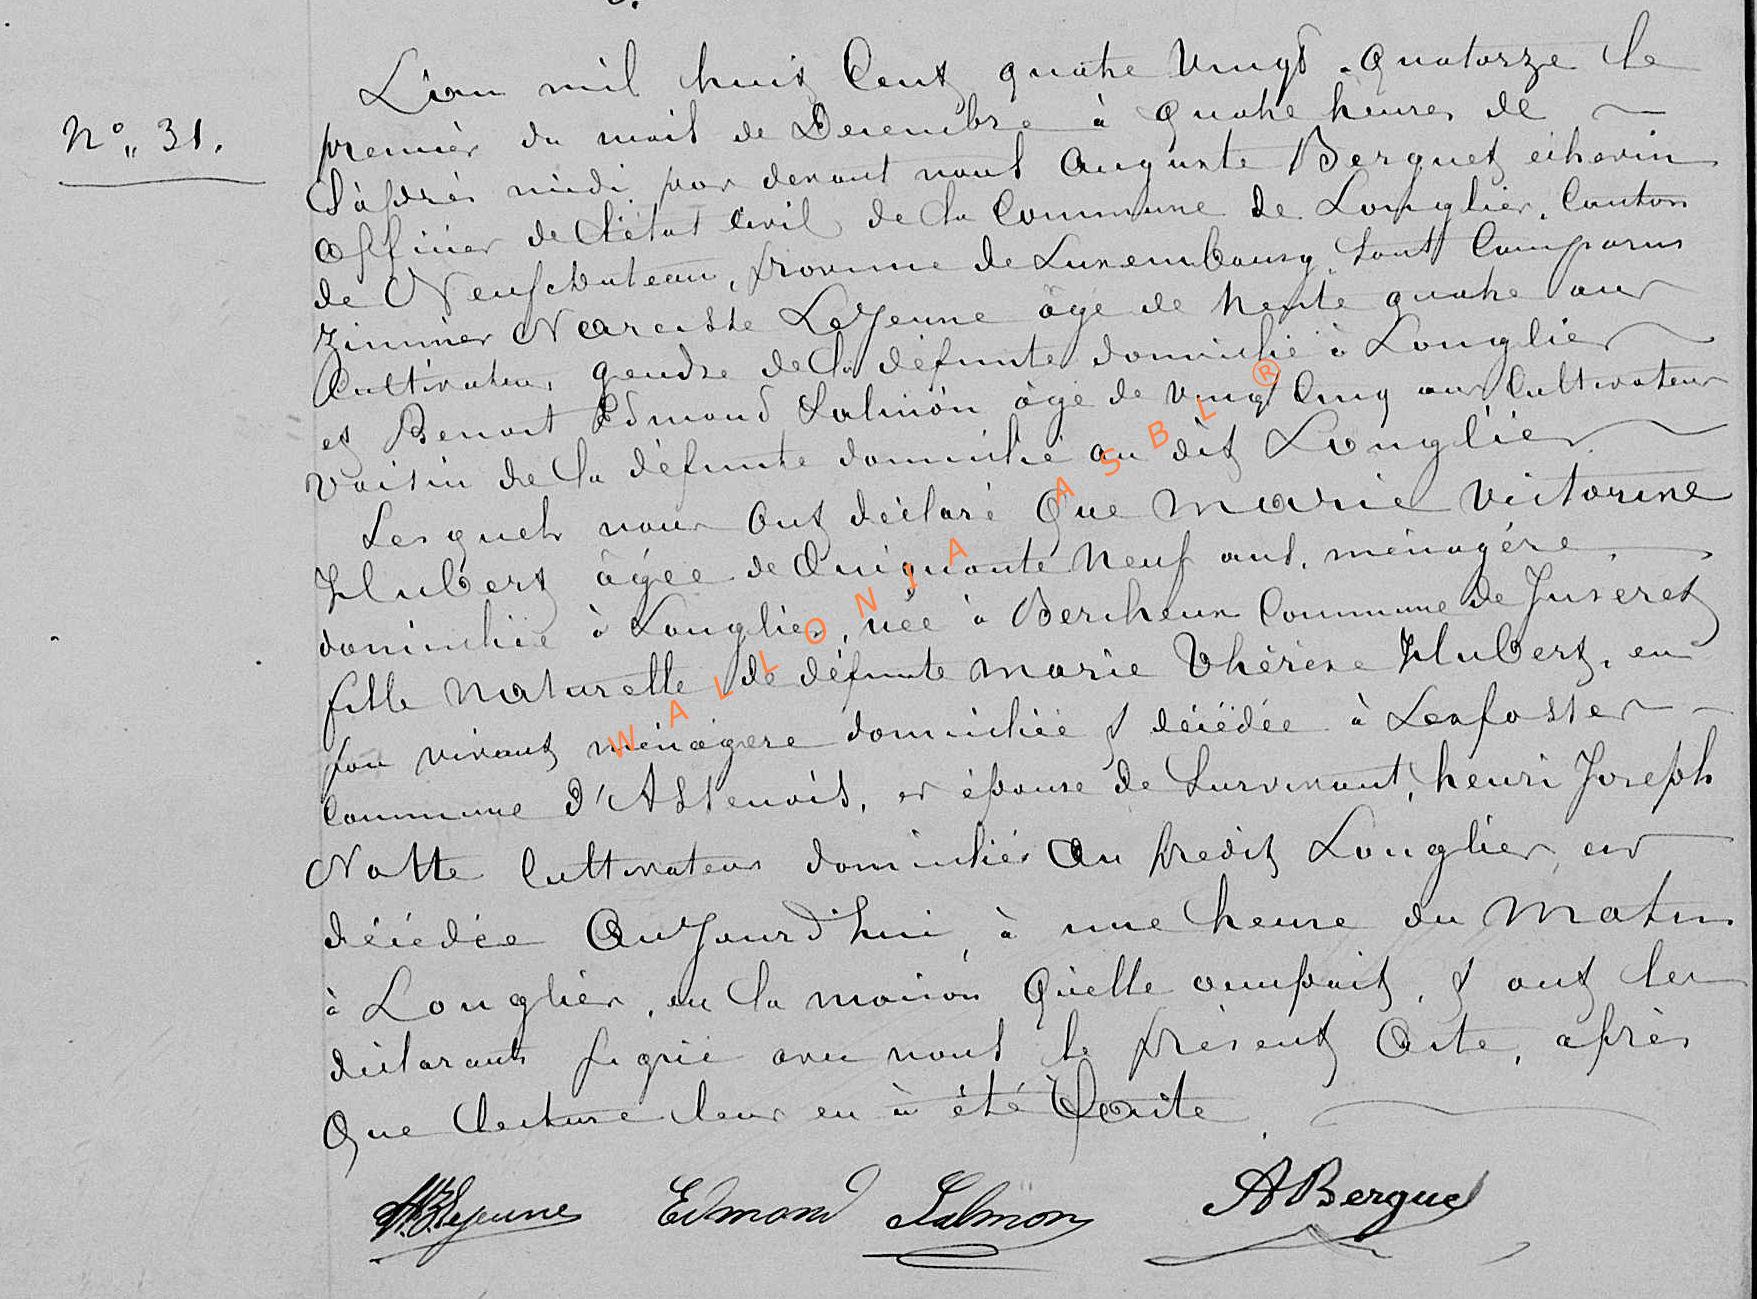 N° 31.
L'an mil huit Cent quatre Vingt-quatorze le
premier du mois de Décembre à quatre heures de
l'après midi, par devant nous Auguste Berguet échevin
officier de l'état Civil de la Commune de Longlier, Canton
de Neufchâteau, province de Luxembourg, sont Comparus
Narcisse Lejeune âgé de trente quatre ans
Cultivateur, gendre de la défunte domicilié à Longlier
et Benoit Edmond Salmon âgé de vingt Cinq ans Cultivateur
voisin de la défunte domicilié au dit Longlier
Lesquels nous Ont déclaré Que Marie Victorine
Hubert âgée de Cinquante Neuf ans, ménagère,
domiciliée à Longlier, née à Bercheux Commune de Juseret
fille Naturelle de défunte Marie Thérèse Hubert, en
son vivant ménagère domiciliée & décédée à Lesfosses
Commune d'Assenois, et épouse de Survivant, henri Joseph
Notte Cultivateur domicilié Au predit Longlier, est
décédée Aujourd'hui, à une heure du Matin
à Longlier, en la maison Qu'elle occupait, & ont les
déclarants signé avec nous le présent Acte, après
Que lecture leur en à été faite.
N. Lejeune Edmond Salmon A Berguet
WALLONIA ASBL ®